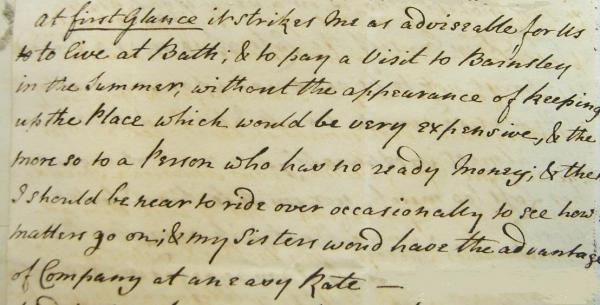 at first Glance it strikes Me as adviseable for Us
to live at Bath; & to pay a Visit to Barnsley
in the Summer, without the appearance of keeping
up the Place which would be very expensive, & the
more so to a Person who has no ready Money; & then
I should be near to ride over occasionally to see how
matters go on; & my Sisters woud have the advantage
of Company at an easy Rate —